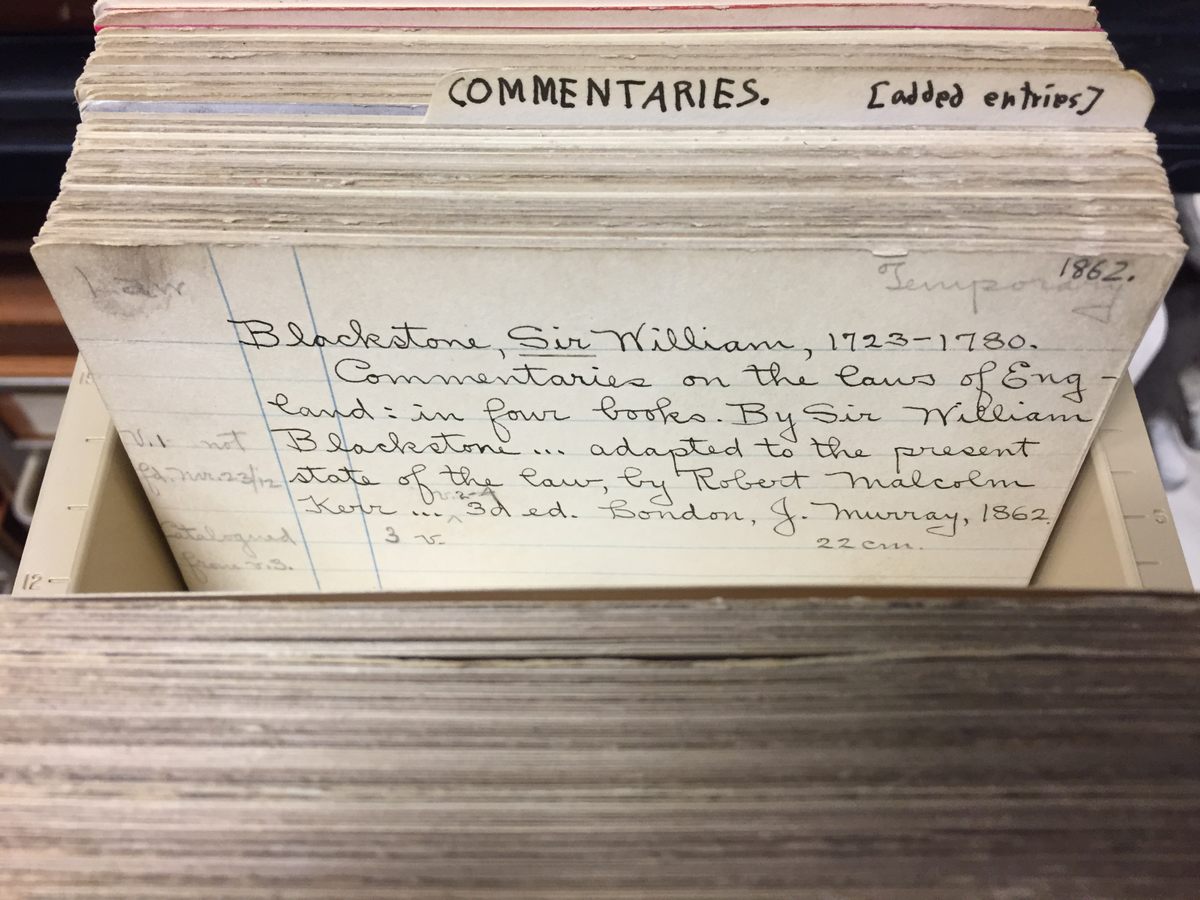 COMMENTARIES. [added entries]
Law Temporary 1862.
Blackstone, Sir William, 1723-1780.
Commentaries on the laws of Eng-
land: in four books. By Sir William
Blackstone ... adapted to the present
V.1 not
state of the law, by Robert Malcolm
v.2-4
Kerr ... ^ 3d ed. London, J. Murray, 1862.
Catalogued 3 v. 22 cm.
from v.3.
12